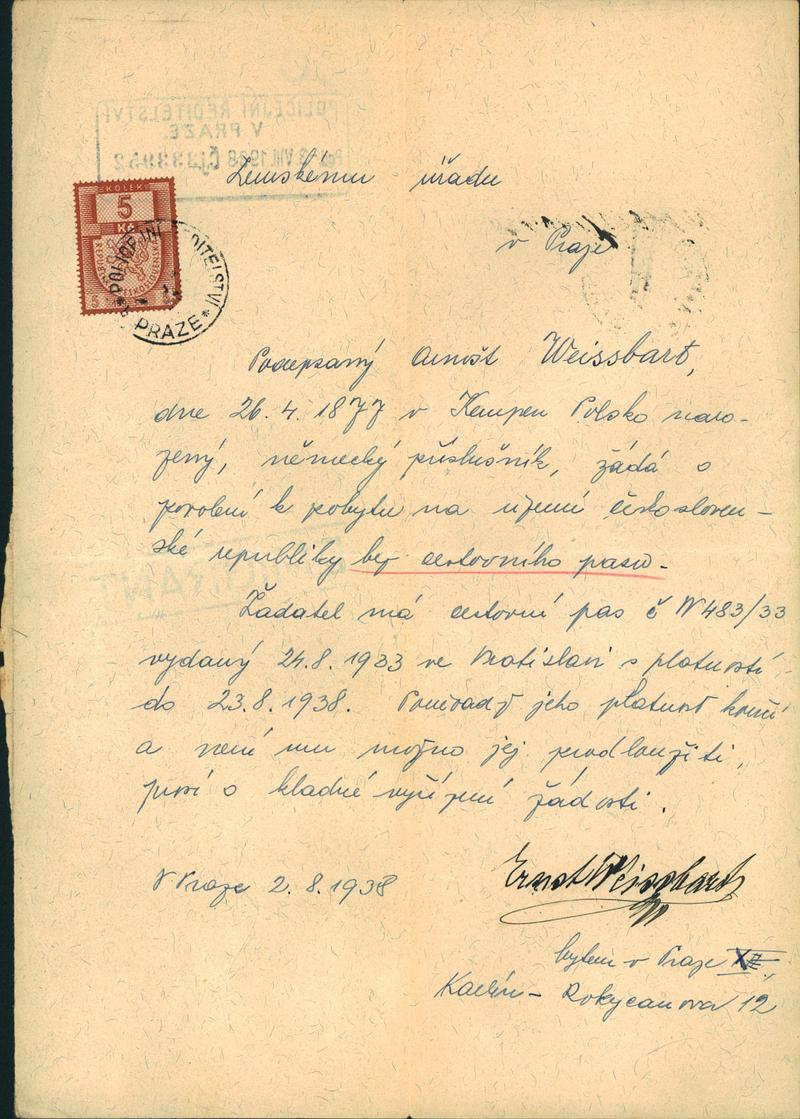 POLICEJNÍ ŘEDITELSTVÍ
V PRAZE.
3 VIII 1938 Čj 233952
Zemskému úřadu
v Praze
KOLEK
5
Kč
POLICEJNÍ ŘEDITELSTVÍ
* PRAZE *
Podepsaný Arnošt Weissbart,
dne 26. 4. 1877 v Kempen Polsko naro-
zený, německý příslušník, žádá o
povolení k pobytu na území českosloven-
ské republiky bez cestovního pasu.
Žadatel má cestovní pas č W483/33
vydaný 24.8.1933 ve Vratislavi s platností
do 23.8.1938. Poněvadž jeho platnost končí
a není mu možno jej prodloužiti,
prosí o kladné vyřízení žádosti.
V Praze 2.8.1938
Ernst Weissbart
bytem v Praze XII.,
Rokycanova 12